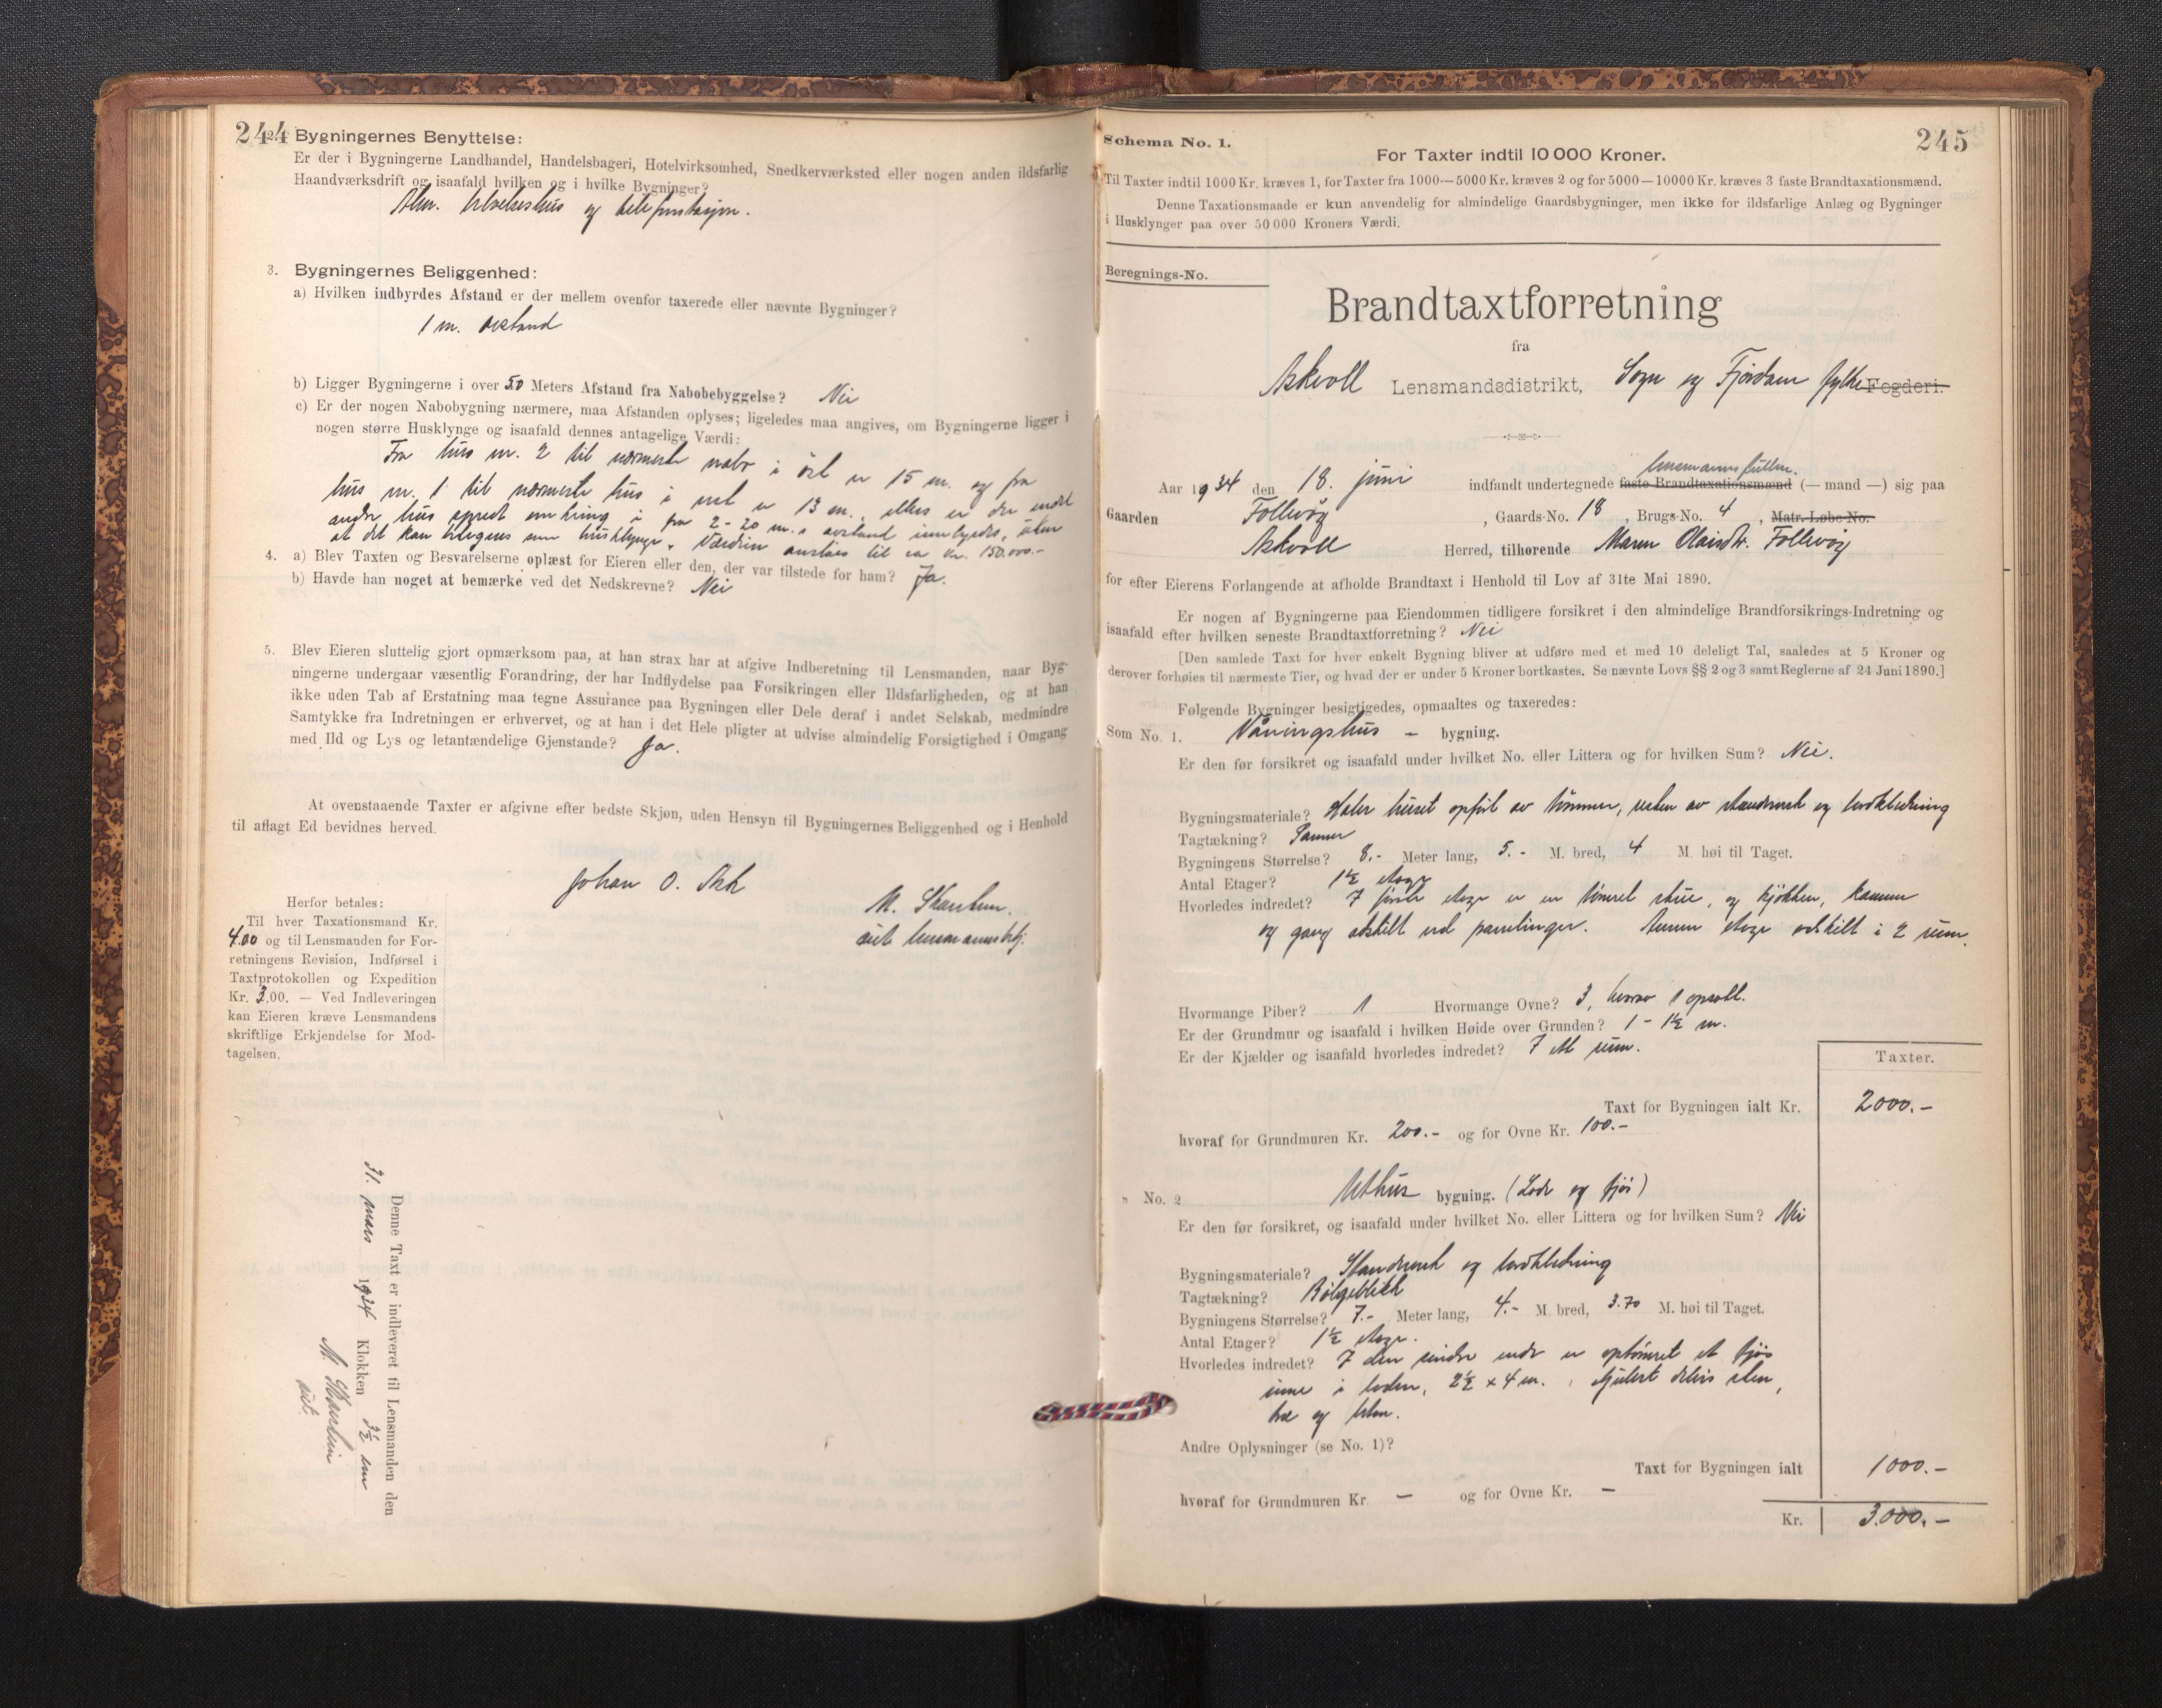 244
2. Bygningernes Benyttelse:
Er der i Bygningerne Landhandel, Handelsbageri, Hotelvirksomhed, Snedkerværksted eller nogen anden ildsfarlig
Haandværksdrift og isaafald hvilken og i hvilke Bygninger?
Alm. og telefonstasjon.
3. Bygningernes Beliggenhed:
a) Hvilken indbyrdes Afstand er der mellem ovenfor taxerede eller nævnte Bygninger?
1 m. avstand
b) Ligger Bygningerne i over 50 Meters Afstand fra Nabobebyggelse? Nei
c) Er der nogen Nabobygning nærmere, maa Afstanden oplyses; ligeledes maa angives, om Bygningerne ligger i
nogen større Husklynge og isaafald dennes antagelige Værdi:
Fra hus nr. 2 til nærmeste nabo i öst er 15 m. og fra
hus nr. 1 til nærmeste hus i vest er 13 m., ellers er der endel
andre hus spredt omkring i fra 2-20 m.s avstand innbyrdes, uten
at det kan betegnes som husklynge. Værdien ansláes til ca kr. 150.000.-
4. a) Blev Taxten og Besvarelserne oplæst for Eieren eller den, der var tilstede for ham? Ja.
b) Havde han noget at bemærke ved det Nedskrevne? Nei
5. Blev Eieren sluttelig gjort opmærksom paa, at han strax har at afgive Indberetning til Lensmanden, naar Byg-
ningerne undergaar væsentlig Forandring, der har Indflydelse paa Forsikringen eller Ildsfarligheden, og at han
ikke uden Tab af Erstatning maa tegne Assurance paa Bygningen eller Dele deraf i andet Selskab, medmindre
Samtykke fra Indretningen er erhvervet, og at han i det Hele pligter at udvise almindelig Forsigtighed i Omgang
med Ild og Lys og letantændelige Gjenstande? Ja.
At ovenstaaende Taxter er afgivne efter bedste Skjøn, uden Hensyn til Bygningernes Beliggenhed og i Henhold
til aflagt Ed bevidnes herved.
Johan O. Ask
Herfor betales:
Til hver Taxationsmand Kr.
4.00 og til Lensmanden for For-
retningens Revision, Indførsel i
Taxtprotokollen og Expedition
Kr. 3.00. — Ved Indleveringen
kan Eieren kræve Lensmandens
skriftlige Erkjendelse for Mod-
tagelsen.
Denne Taxt er indleveret til Lensmanden den
31. mars 1934 Klokken 3½ em
245
Schema No. 1.
For Taxter indtil 10 000 Kroner.
Til Taxter indtil 1000 Kr. kræves 1, for Taxter fra 1000—5000 Kr. kræves 2 og for 5000—10000 Kr. kræves 3 faste Brandtaxationsmænd.
Denne Taxationsmaade er kun anvendelig for almindelige Gaardsbygninger, men ikke for ildsfarlige Anlæg og Bygninger
i Husklynger paa over 50 000 Kroners Værdi.
Beregnings-No.
Brandtaxtforretning
fra
Askvoll Lensmandsdistrikt, Sogn og Fjordane fylke Fogderi.
Aar 1934 den 18. juni indfandt undertegnede faste Brandtaxationsmænd (— mand —) sig paa
Gaarden Follevåg, Gaards-No. 18, Brugs-No. 4, Matr. Løbe-No.
Askvoll Herred, tilhørende Maren Follevåg
for efter Eierens Forlangende at afholde Brandtaxt i Henhold til Lov af 31te Mai 1890.
Er nogen af Bygningerne paa Eiendommen tidligere forsikret i den almindelige Brandforsikrings-Indretning og
isaafald efter hvilken seneste Brandtaxtforretning? Nei
[Den samlede Taxt for hver enkelt Bygning bliver at udføre med et med 10 deleligt Tal, saaledes at 5 Kroner og
derover forhøies til nærmeste Tier, og hvad der er under 5 Kroner bortkastes. Se nævnte Lovs §§ 2 og 3 samt Reglerne af 24 Juni 1890.]
Følgende Bygninger besigtigedes, opmaaltes og taxeredes:
Som No. 1. Våningshus - bygning.
Er den før forsikret og isaafald under hvilket No. eller Littera og for hvilken Sum? Nei.
Bygningsmateriale? huset opført av tömmer, resten av standverk og bordkledning
Tagtækning? Panner
Bygningens Størrelse? 8.- Meter lang, 5.- M. bred, 4 M. høi til Taget.
Antal Etager? 1½ etage
Hvorledes indredet? I förste etage er en tömret stue, og kjökken, kammer
og gang avskilt ved panelinger. Annen etage avskilt i 2 rum.
Hvormange Piber? 1 Hvormange Ovne? 3, herav 1 opsatt.
Er der Grundmur og isaafald i hvilken Høide over Grunden? 1 - 1½ m.
Er der Kjælder og isaafald hvorledes indredet? I ett rum.
Taxter.
Taxt for Bygningen ialt Kr. 2000.-
hvoraf for Grundmuren Kr. 200.- og for Ovne Kr. 100.-
" No. 2 Uthus bygning. (Lode og fjös)
Er den før forsikret, og isaafald under hvilket No. eller Littera og for hvilken Sum? Nei
Bygningsmateriale? Standverk og bordkledning
Tagtækning? Bölgeblikk
Bygningens Størrelse? 7.- Meter lang, 4.- M. bred, 3.70 M. høi til Taget.
Antal Etager? 1½ etage.
Hvorledes indredet? I den endre er optömret et fjös
inne i loden, 2½ x 4 m., delvis sten,
tre og
Andre Oplysninger (se No. 1)?
Taxt for Bygningen ialt 1000.-
hvoraf for Grundmuren Kr. — og for Ovne Kr. —
Kr. 3.000.-